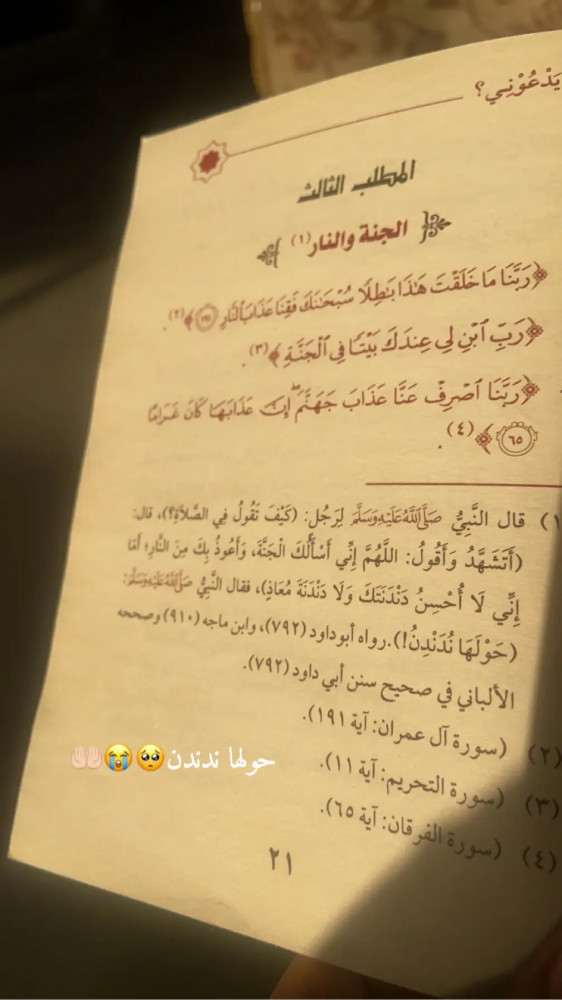 يَدْعُوْنِي؟
المطلب الثالث
الجنة والنار(١)
﴿رَبَّنَا مَا خَلَقْتَ هَٰذَا بَٰطِلًا سُبْحَٰنَكَ فَقِنَا عَذَابَ ٱلنَّارِ ١٩١﴾(٢).
﴿رَبِّ ٱبْنِ لِي عِندَكَ بَيْتًا فِي ٱلْجَنَّةِ﴾(٣).
﴿رَبَّنَا ٱصْرِفْ عَنَّا عَذَابَ جَهَنَّمَ ۖ إِنَّ عَذَابَهَا كَانَ غَرَامًا
٦٥﴾(٤).
١) قال النَّبِيُّ صَلَّى اللَّهُ عَلَيْهِ وَسَلَّمَ لِرَجُلٍ: (كَيْفَ تَقُولُ فِي الصَّلَاةِ؟)، قال:
(أَتَشَهَّدُ وَأَقُولُ: اللَّهُمَّ إِنِّي أَسْأَلُكَ الْجَنَّةَ، وَأَعُوذُ بِكَ مِنَ النَّارِ؛ أمَا
إِنِّي لَا أُحْسِنُ دَنْدَنَتَكَ وَلَا دَنْدَنَةَ مُعَاذٍ)، فقال النَّبِيُّ صَلَّى اللَّهُ عَلَيْهِ وَسَلَّمَ:
(حَوْلَهَا نُدَنْدِنُ!).رواه أبوداود (٧٩٢)، وابن ماجه (٩١٠) وصححه
الألباني في صحيح سنن أبي داود (٧٩٢).
(٢) (سورة آل عمران: آية ١٩١).
(٣) (سورة التحريم: آية ١١).
(٤) (سورة الفرقان: آية ٦٥).
حولها ندندن🥺😭🤲🏻
٢١